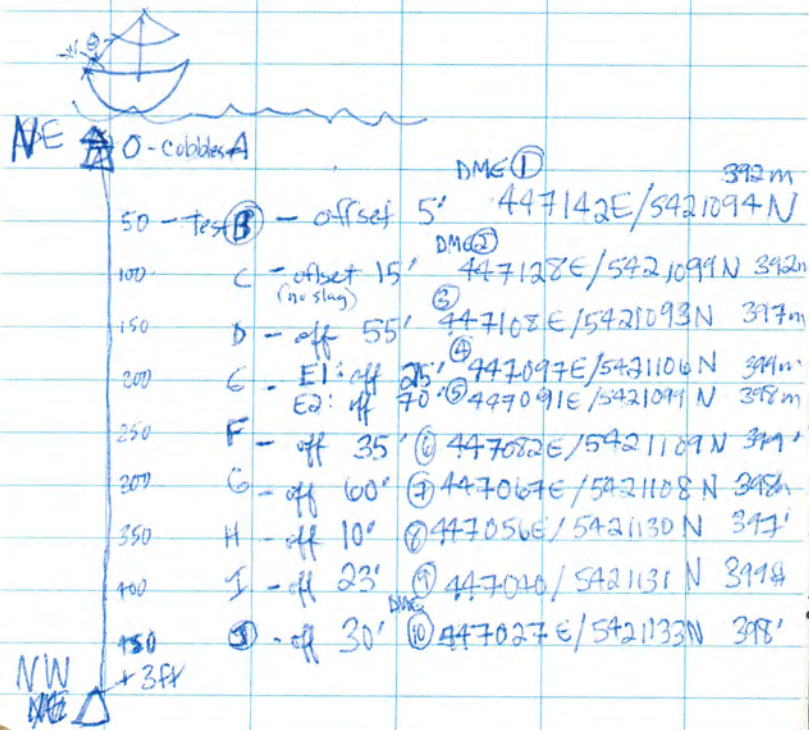 NE 0 - cobbles A
DME ① 392m
50 - test Ⓑ - offset 5' 447142E/5421094N
DME ②
100 C - offset 15' 447128E/5421099N 392m
(no slag)
150 D - off 55' ③ 447108E/5421093N 397m
200 E - E1: off 25' ④ 447097E/5421106N 399m
E2: off 70' ⑤ 447091E/5421099N 398m
250 F - off 35' ⑥ 447082E/5421109N 399'
300 G - off 60' ⑦ 447067E/5421108N 398m
350 H - off 10' ⑧ 447056E/5421130N 397'
400 I - off 23' ⑨ 447040/5421131N
DME
450 J - off 30' ⑩ 447027E/5421133N 398'
+3ft
NW